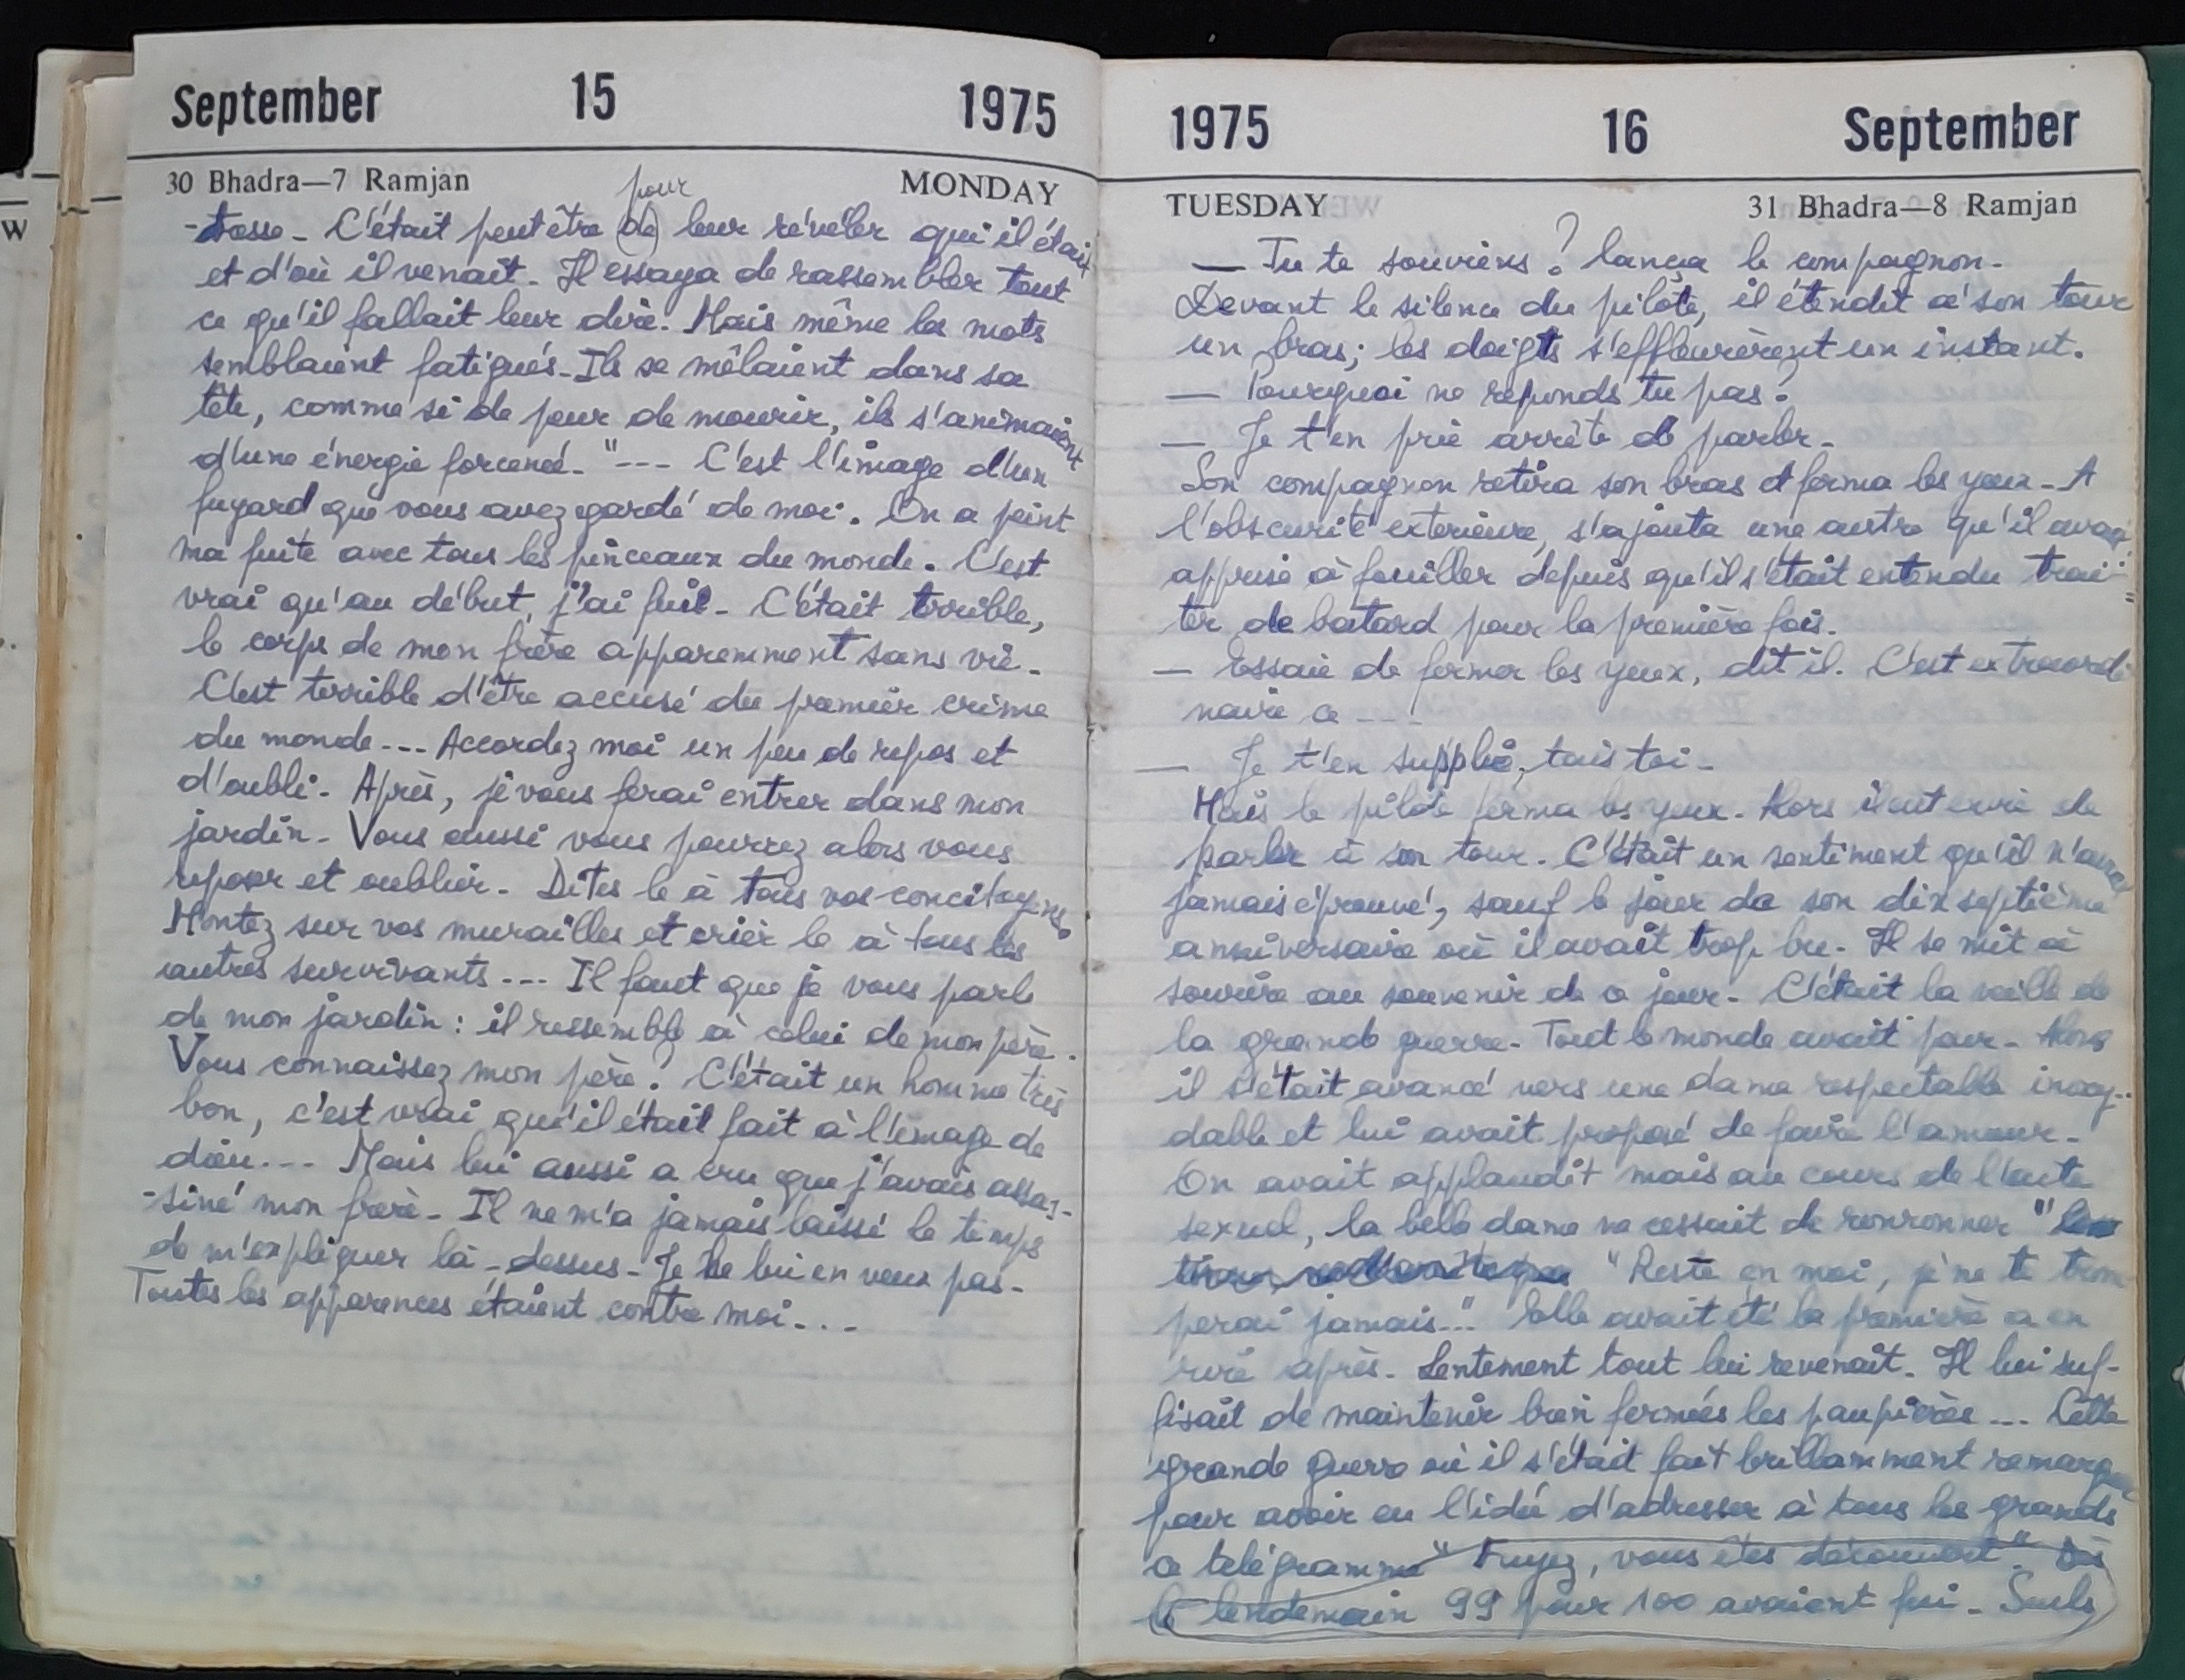 September 15 1975
30 Bhadra—7 Ramjan MONDAY
pour
-tesse - C'était peut être (de) leur révéler qui il était
et d'où il venait. Il essaya de rassembler tout
ce qu'il fallait leur dire. Mais même les mots
semblaient fatigués - Ils se mêlaient dans sa
tête, comme si de peur de mourir, ils s'animaient
d'une énergie forcené - "--- C'est l'image d'un
fuyard que vous avez gardé de moi. On a peint
ma fuite avec tous les pinceaux du monde. C'est
vrai qu'au début, j'ai fuit - C'était terrible,
le corps de mon frère apparemment sans vie -
C'est terrible d'être accusé du premier crime
du monde --- Accordez moi un peu de repos et
d'oubli - Après, je vous ferai entrer dans mon
jardin - Vous aussi vous pourrez alors vous
reposer et oublier - Dites le à tous vos concitoyens
Montez sur vos murailles et crier le à tous les
autres survivants --- Il faut que je vous parle
de mon jardin : il ressemble à celui de mon père.
Vous connaissez mon père ? C'était un homme très
bon, c'est vrai qu'il était fait à l'image de
dieu --- Mais lui aussi a cru que j'avais assas-
-siné mon frère - Il ne m'a jamais laissé le temps
de m'expliquer là-dessus - Je ne lui en veux pas -
Toutes les apparences étaient contre moi...
W
1975 16 September
TUESDAY 31 Bhadra—8 Ramjan
— Tu te souviens ? lança le compagnon -
Devant le silence du pilote, il étendit à son tour
un bras ; les doigts s'effleurèrent un instant.
— Pourquoi ne reponds tu pas ?
— Je t'en prie arrête de parler -
Son compagnon retira son bras et ferma les yeux - A
l'obscurité exterieure, s'ajouta une autre qu'il avait
apprise à fouiller depuis qu'il s'était entendu trai-
ter de batard pour la première fois.
— Essaie de fermer les yeux, dit il. C'est extraordi-
naire ce ---
— Je t'en supplie, tais toi -
Mais le pilote ferma les yeux. Alors il eut envie de
parler à son tour. C'était un sentiment qu'il n'avait
jamais éprouvé, sauf le jour de son dix septième
anniversaire où il avait trop bu - Il se mit à
sourire au souvenir de ce jour - C'était la veille de
la grande guerre - Tout le monde avait peur - Alors
il s'était avancé vers une dame respectable
dable et lui avait proposé de faire l'amour -
On avait applaudit mais au cours de l'acte
sexuel, la belle dame ne cessait de ronronner "
"Reste en moi, je ne te trom
perai jamais..." Elle avait été la première a en
rire après. Lentement tout lui revenait. Il lui suf-
fisait de maintenir bien fermées les paupières --- Cette
grande guerre où il s'était fait brillamment remarquer
pour avoir eu l'idée d'adresser à tous les grands
ce télégramme "Fuyez, vous êtes découvert". Dès
le lendemain 99 pour 100 avaient fui - Seuls